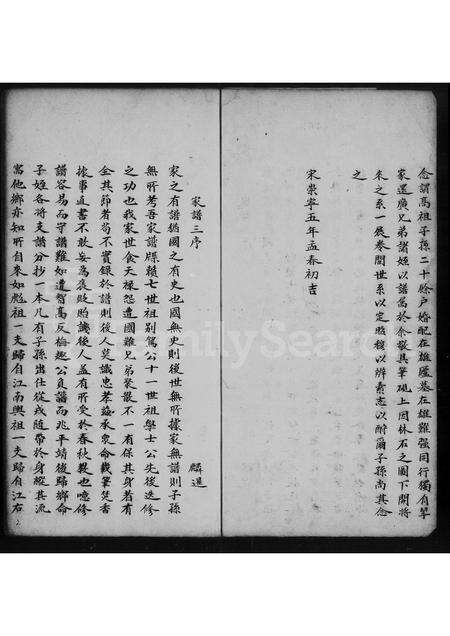 念謂高祖子孫二十餘戶婚配在雄廬墓在雄難強同行獨有筆
家還廣兄弟諸姪以譜属於余敬具筆硯上因休石之圖下開將
來之系一展卷間世系以定昭穆以辨素志以酬爾子孫尚其念
之
宋崇寧五年孟春初吉
家譜三序
麟選
家之有譜猶國之有史也國無史則後世無所據家無譜則子孫
無所考吾家譜牒賴七世祖別駕公十一世祖學士公先後迭修
之功也我家世食天祿怨遭國難兄弟聚散不一有保其身者有
全其節者苟不實錄於譜則後人莫識忠孝謹承衆命載筆焚香
據事直書不敢妄爲褒貶貽譏後人蓋有所受於春秋異也噫修
譜容易而守譜難如遺智高反梅趣公負譜而兆平靖後歸鄉命
子姪各將支譜分抄一本凡有子孫出仕從戎隨帶於身縱其流
寓他鄉亦知所自來如彪祖一支歸自江南與祖一支歸自江右
FamilySearch